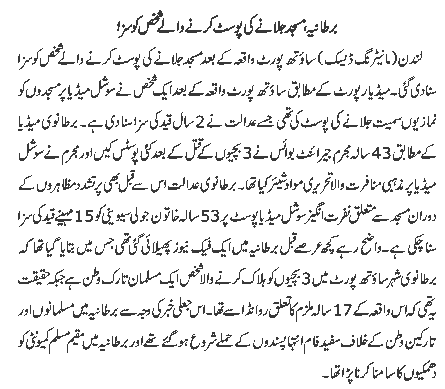 برطانیہ، مسجد جلانے کی پوسٹ کرنے والے شخص کو سزا!
لندن (مانیٹرنگ ڈیسک) ساؤتھ پورٹ واقعہ کے بعد مسجد جلانے کی پوسٹ کرنے والے شخص کو سزا
سنا دی گئی۔ میڈیا رپورٹ کے مطابق ساؤتھ پورٹ واقعہ کے بعد ایک شخص نے سوشل میڈیا پر مسجدوں کو
نمازیوں سمیت جلانے کی پوسٹ کی تھی جسے عدالت نے 2 سال قید کی سزا سنا دی ہے۔ برطانوی میڈیا
کے مطابق 43 سالہ مجرم جیرائنٹ بوائس نے 3 بچیوں کے قتل کے بعد کئی پوسٹس کیں اور مجرم نے سوشل
میڈیا پر مذہبی منافرت والا تحریری مواد شیئر کیا تھا۔ برطانوی عدالت اس سے قبل بھی پر تشدد مظاہروں کے
دوران مسجد سے متعلق نفرت انگیز سوشل میڈیا پوسٹ پر 53 سالہ خاتون جولی سیوینی کو 15 مہینے قید کی سزا
سنا چکی ہے۔ واضح رہے کچھ عرصے قبل برطانیہ میں ایک فیک نیوز پھیلائی گئی تھی جس میں بتایا گیا تھا کہ
برطانوی شہر ساؤتھ پورٹ میں 3 بچیوں کو ہلاک کرنے والا شخص ایک مسلمان تارک وطن ہے جبکہ حقیقت
یہ تھی کہ اس واقعہ کے 17 سالہ ملزم کا تعلق روانڈا سے تھا۔ اس جعلی خبر کی وجہ سے برطانیہ میں مسلمانوں اور
تارکین وطن کے خلاف سفید فام انتہا پسندوں کے حملے شروع ہو گئے تھے اور برطانیہ میں مقیم مسلم کمیونٹی کو
دھمکیوں کا سامنا کرنا پڑا تھا۔